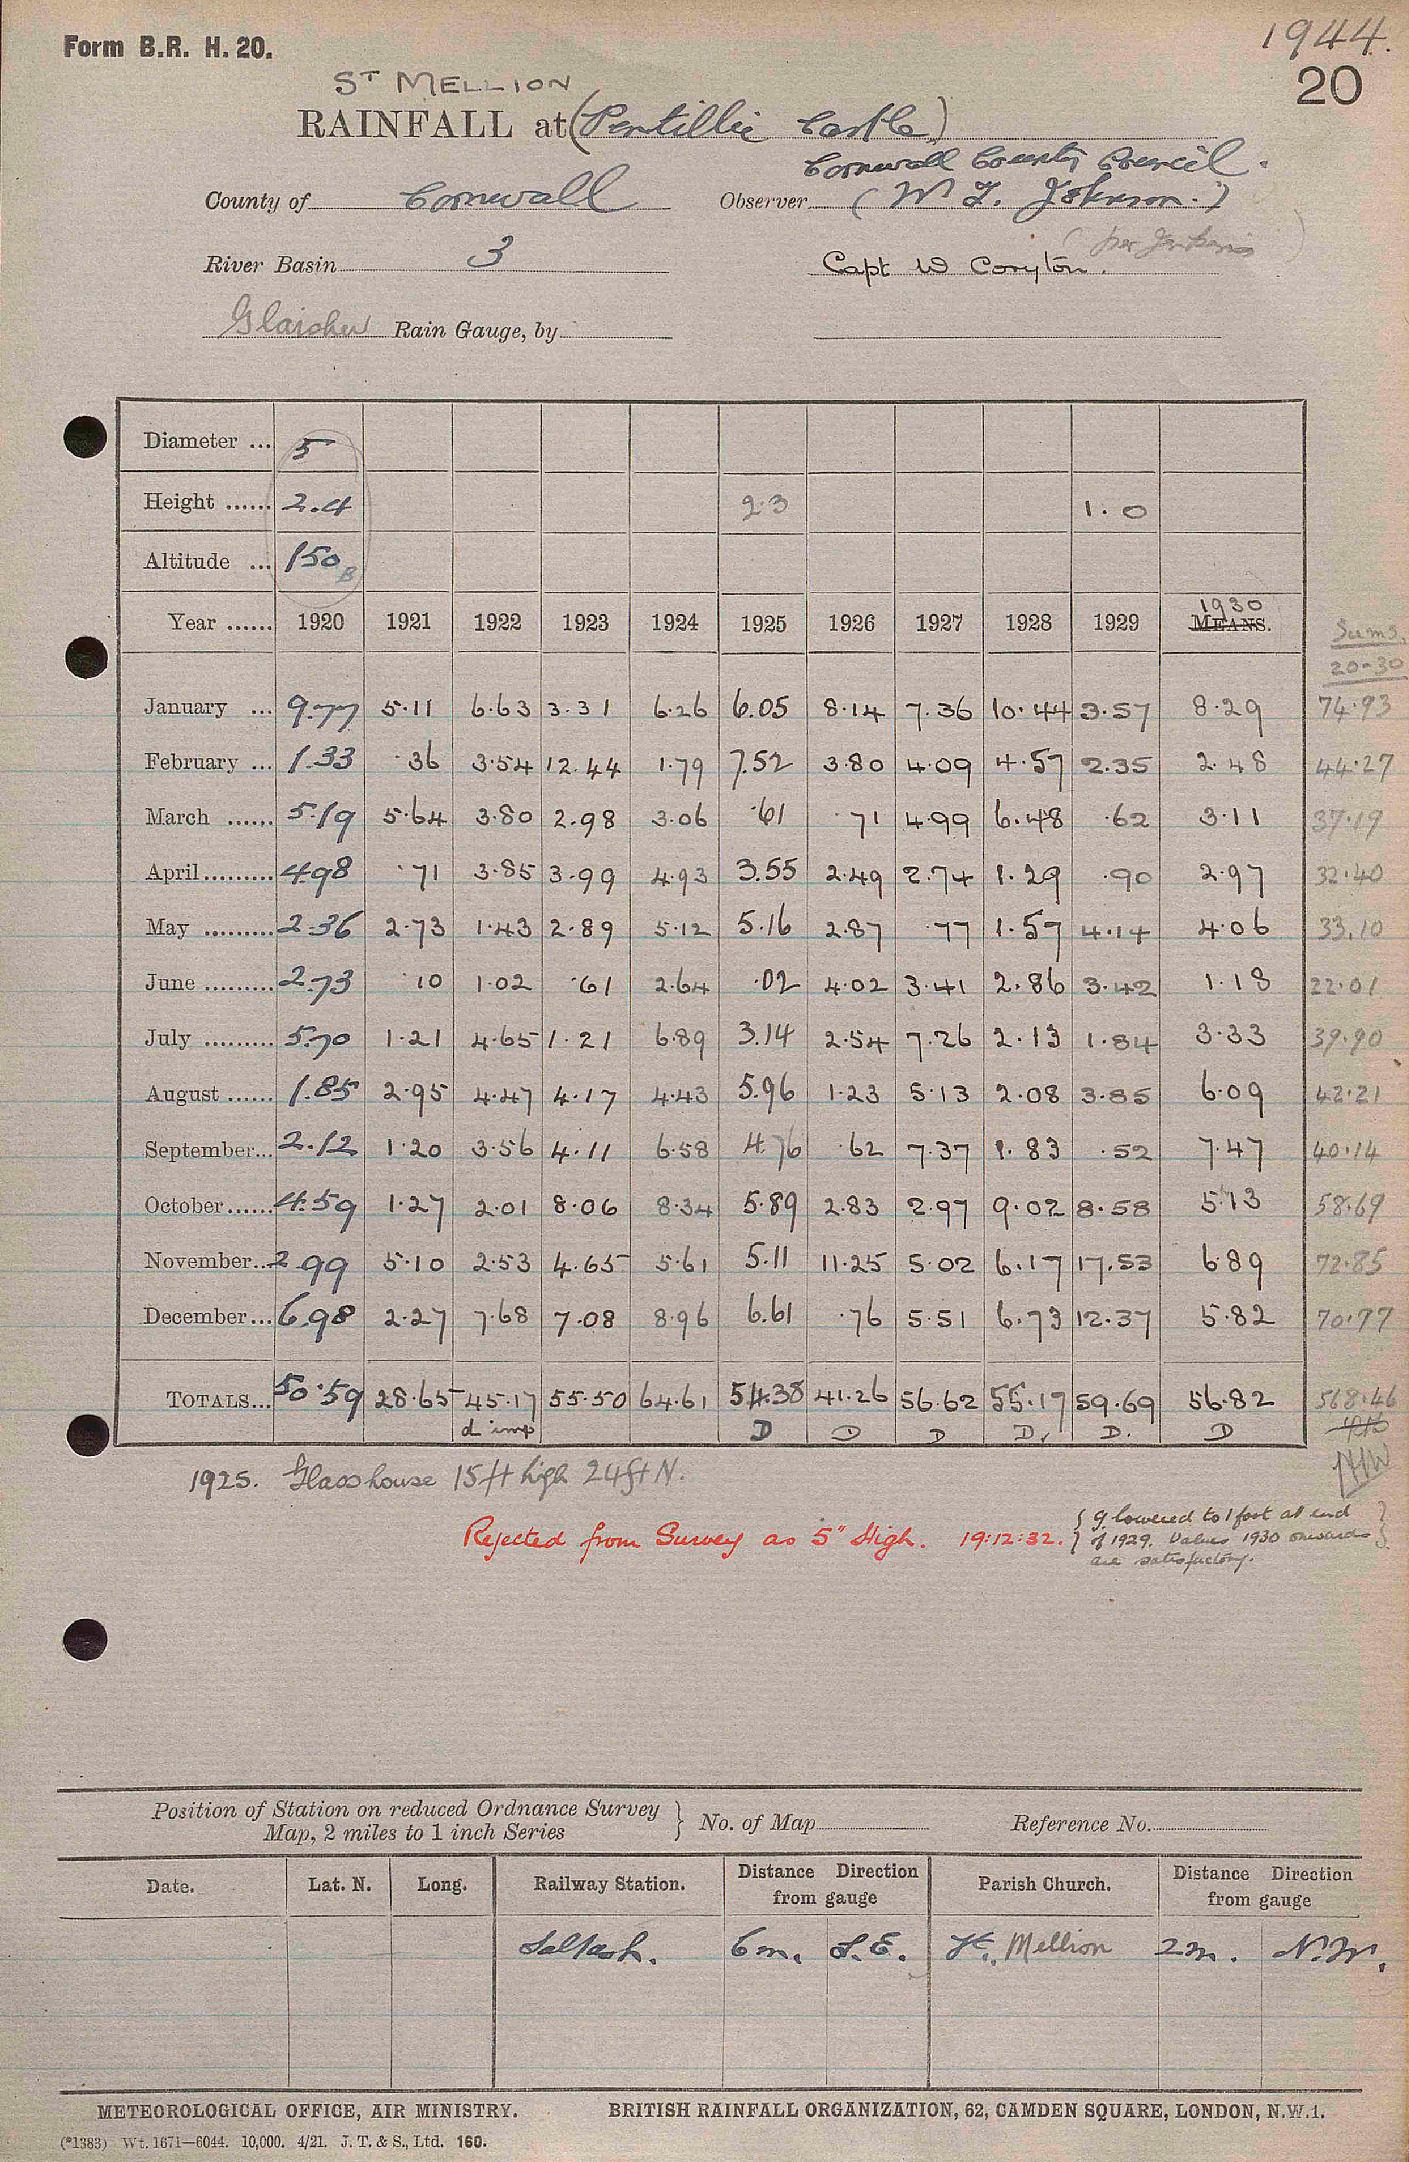 1944.
Form B.R. H. 20.
20
ST MELLION
RAINFALL at (Pentillie Castle)
Cornwall County Council.
County of Cornwall Observer (W. F. Johnson.)
River Basin 3 Capt W Coryton. (per Jenkins)
Glaisher Rain Gauge, by
Diameter ... 5
Height ...... 2.4 2.3 1.0
Altitude ... 150 B
1930
Year ...... 1920 1921 1922 1923 1924 1925 1926 1927 1928 1929 MEANS. Sums.
20-30
January ... 9.77 5.11 6.63 3.31 6.26 6.05 8.14 7.36 10.44 3.57 8.29 74.93
February ... 1.33 .36 3.54 12.44 1.79 7.52 3.80 4.09 4.57 2.35 2.48 44.27
March ...... 5.19 5.64 3.80 2.98 3.06 .61 .71 4.99 6.48 .62 3.11 37.19
April ......... 4.98 .71 3.85 3.99 4.93 3.55 2.49 2.74 1.29 .90 2.97 32.40
May ......... 2.36 2.73 1.43 2.89 5.12 5.16 2.87 .77 1.57 4.14 4.06 33.10
June ......... 2.73 .10 1.02 .61 2.64 .02 4.02 3.41 2.86 3.42 1.18 22.01
July ......... 5.70 1.21 4.65 1.21 6.89 3.14 2.54 7.26 2.13 1.84 3.33 39.90
August ...... 1.85 2.95 4.47 4.17 4.43 5.96 1.23 5.13 2.08 3.85 6.09 42.21
September... 2.12 1.20 3.56 4.11 6.58 4.76 .62 7.37 1.83 .52 7.47 40.14
October ...... 4.59 1.27 2.01 8.06 8.34 5.89 2.83 2.97 9.02 8.58 5.13 58.69
November... 2.99 5.10 2.53 4.65 5.61 5.11 11.25 5.02 6.17 17.53 6.89 72.85
December... 6.98 2.27 7.68 7.08 8.96 6.61 .76 5.51 6.73 12.37 5.82 70.77
TOTALS... 50.59 28.65 45.17 55.50 64.61 54.38 41.26 56.62 55.17 59.69 56.82 568.46
d imp D D D D. D. D
1925. Glasshouse 15ft high 24ft N.
Rejected from Survey as 5" High. 19:12:32. {g lowered to 1 foot at end
of 1929. Values 1930 onwards
are satisfactory.}
Position of Station on reduced Ordnance Survey
Map, 2 miles to 1 inch Series } No. of Map Reference No.
Date. Lat. N. Long. Railway Station. Distance Direction from gauge Parish Church. Distance Direction from gauge
Saltash. 6m. S.E. St. Mellion 2m. N.W.
METEOROLOGICAL OFFICE, AIR MINISTRY. BRITISH RAINFALL ORGANIZATION, 62, CAMDEN SQUARE, LONDON, N.W.1.
(*1383) Wt. 1671—6044. 10,000. 4/21. J. T. & S., Ltd. 160.